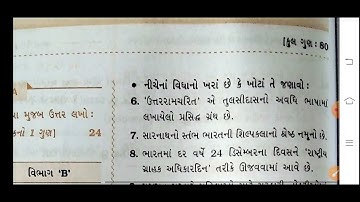 [કુલ ગુણ : 80
• નીચેનાં વિધાનો ખરાં છે કે ખોટાં તે જણાવો :
મુજબ ઉત્તર લખો :
6. 'ઉત્તરરામચરિત' એ તુલસીદાસનો અવધિ ભાષામાં
ગુણ] 24
લખાયેલો પ્રસિદ્ધ ગ્રંથ છે.
7. સારનાથનો સ્તંભ ભારતની શિલ્પકલાનો શ્રેષ્ઠ નમૂનો છે.
વિભાગ 'B'
8. ભારતમાં દર વર્ષે 24 ડિસેમ્બરના દિવસને 'રાષ્ટ્રીય
ગ્રાહક અધિકારદિન' તરીકે ઊજવવામાં આવે છે.